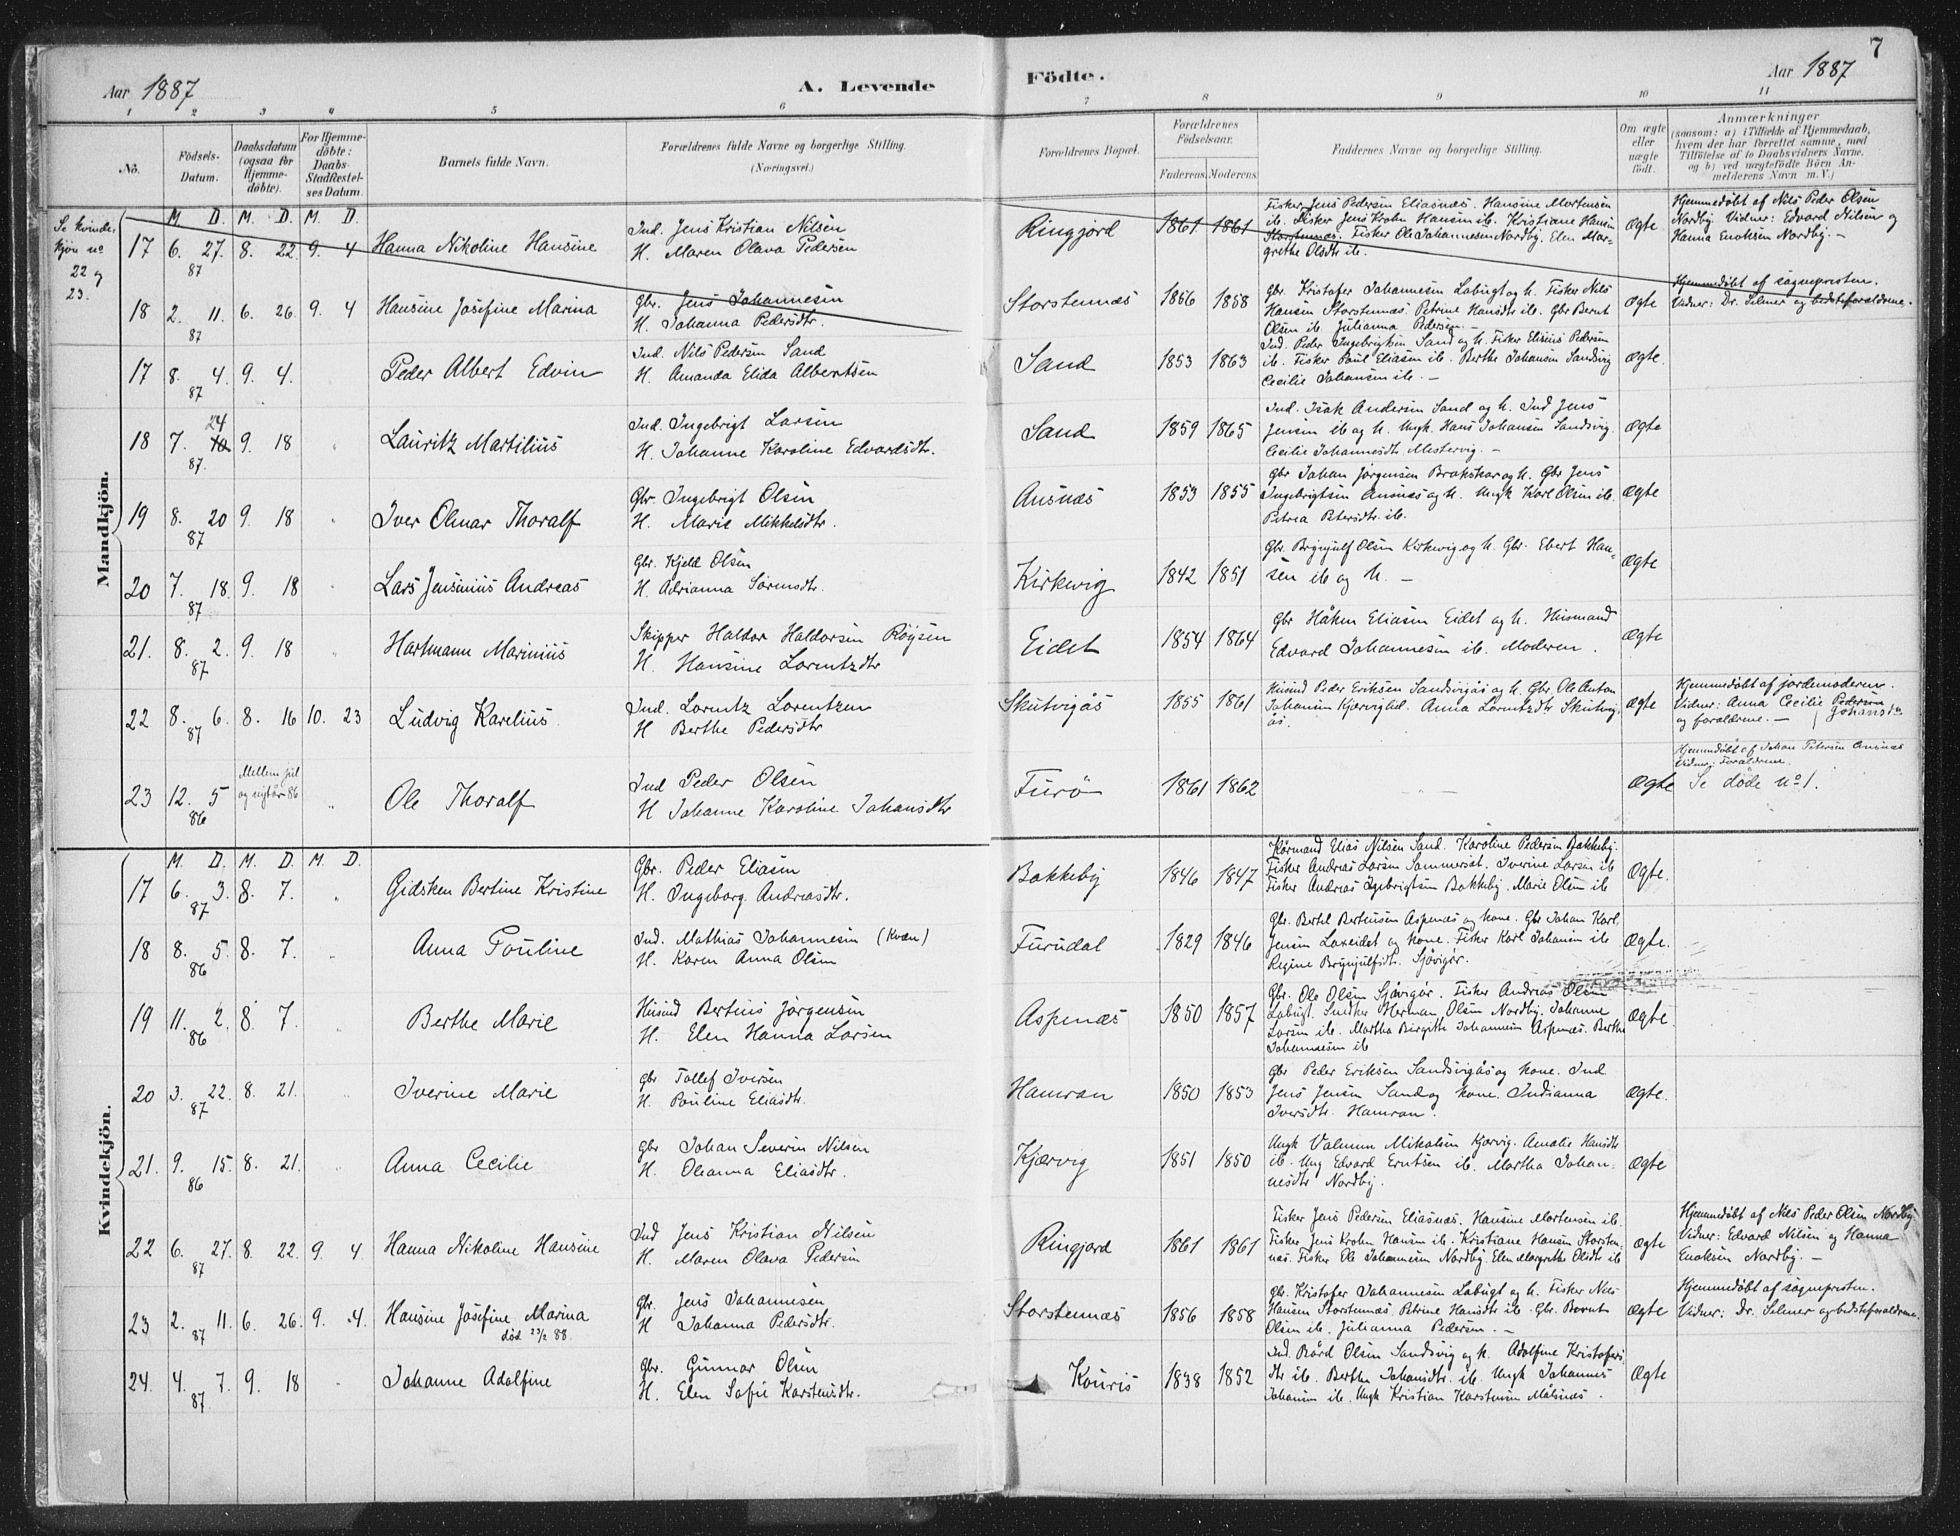 7
Aar 1887 A. Levende Födte. Aar 1887
1 2 3 4 5 6 7 8 9 10 11
No. Födsels-Datum. Daabsdatum (ogsaa for Hjemme-döbte). For Hjemme-döbte: Daabs-Stadfæstel-ses Datum. Barnets fulde Navn. Forældrenes fulde Navne og borgerlige Stilling. (Næringsvei.) Forældrenes Bopæl. Forældrenes Födselsaar. Faderens Moderens Faddernes Navne og borgerlige Stilling. Om ægte eller uægte födt. Anmærkninger (saasom: a) i Tilfælde af Hjemmedaab, hvem der har forrettet samme, med Tilföielse af to Daabsvidners Navne, og b) ved uægtefödte Börn Anmelderens Navn m. V.)
Se kvinde
kjøn no
22 og
23.
Mandkjön.
M. D. M. D. M. D.
17 6. 27. 87 8. 22. 9. 4 Hanna Nikoline Hansine
Ind. Jens Kristian Nilsen
H. Maren Olava Pedersen
Ringjord 1861 1861
Fisker Jens Pedersen Eliasnæs. Hansine Mortensen
ib. Fisker Jens Krohn Hansen ib. Kristiane Hansen
Storstennæs. Fisker Ole Johannesen Nordby. Elen Mar-
grethe Olsdtr ib.
Ægte
Hjemmedøbt af Nils Peder Olsen
Nordby Vidner: Edvard Nilsen og
Hanna Enoksen Nordby. –
18 2. 11. 87 6. 26. 9. 4 Hansine Josefine Marina
Gbr. Jens Johannesen
H. Johanna Pedersdtr.
Storstennæs 1856 1858
Gbr. Kristofer Johannesen Labugt og h. Fisker Nils
Hansen Storstennæs. Petrine Hansdtr ib. Gbr Bernt
Olsen ib. Julianna Pedersen. –
Ægte
Hjemmedøbt af sognepresten.
Vidner: Dr. Selmer og bedsteforældrene.
17 8. 4. 87 9. 4. Peder Albert Edvin
Ind. Nils Pedersen Sand
H. Amanda Elida Albertsen
Sand 1853 1863
Ind. Peder Ingebrigtsen Sand og h. Fisker Elisius Pedersen
ib. Fisker Poul Eliasen ib. Berthe Johansen Sandsvig
Cecilie Johansen ib. –
Ægte.
18 7. 24 87. 9. 18 " Lauritz Martilius
Ind. Ingebrigt Larsen
H. Johanne Karoline Edvardsdtr.
Sand 1859 1865
Ind. Isak Andersen Sand og h. Ind Jens
Jensen ib og h. Ungk. Hans Johansen Sandsvig.
Cecilie Johannesdtr Mestervig. –
Ægte
19 8. 20 87 9. 18 " Iver Olmar Thoralf
Gbr. Ingebrigt Olsen
H. Marie Mikkelsdtr.
Ansnæs 1853 1855
Gbr Johan Jørgensen Brokskar og h. Gbr Jens
Ingebrigtsen Ansnæs og h. Ungk Karl Olsen ib.
Petrea Petersdtr. ib.
Ægte
20 7. 18. 87 9. 18 Lars Jensinius Andreas
Gbr. Kjeld Olsen
H. Adrianna Sørensdtr.
Kirkevig 1842 1851
Gbr. Brynjulf Olsen Kirkevig og h. Gbr. Ebert Han-
sen ib og h. –
Ægte
21. 8. 2. 87 9. 18 " Hartmann Marinius
Skipper Haldor Haldorsen Røysen
H. Hansine Lorentzdtr
Eidet 1854 1864
Gbr Håken Eliasen Eidet og h. Husmand
Edvard Johannesen ib. Moderen.
Ægte
22 8. 6. 87 8. 16 10. 23 Ludvig Karelius
Ind. Lorentz Lorentzen
H Berthe Pedersdtr
Skutvigås 1855 1861
Husmd Peder Eriksen Sandsvigås og h. Gbr. Ole Anton
Johansen Kjærvigeid. Anna Lorentzdtr Skutvig-
ås.
Ægte
Hjemmedøbt af jordemoderen.
Vidner: Anna Cecilie Pedersen
og forældrene. – Johansdtr
23 12. 5 86 Mellem jul og nytår 86 " Ole Thoralf
Ind Peder Olsen
H Johanne Karoline Johansdtr
Furø 1861 1862 – –
Ægte
Hjemmedøbt af Johan Petersen Ansnæs
Vidner: Forældrene.
Se døde no 1.
Kvindekjön.
M. D. M. D. M. D.
17 6. 3. 87 8. 7. " Gidsken Bertine Kristine
Gbr. Peder Eliasen
H. Ingeborg Andreasdtr.
Bakkeby 1846 1847
Kårmand Elias Nilsen Sand. Karoline Pedersen Bakkeby.
Fisker Andreas Larsen Sammersæt. Iverine Larsen ib
Fisker Andreas Igebrigtsen Bakkeby. Marie Olsen ib
Ægte.
18 8. 5. 86 8. 7. " Anna Pouline
Ind. Mathias Johannesen (Kvæn)
H. Karen Anna Olsen
Furudal 1829 1846
Gbr. Bertel Bertheusen Aspenæs og kone. Gbr Johan Karl
Jensen Laxeidet og kone. Fisker Karl Johansen ib
Regine Brynjulfsdtr. Sjøvigår.
Ægte.
19 11. 2. 86 8. 7. " Berthe Marie
Husmd Bertius Jørgensen
H. Elen Hanna Larsen
Aspenæs 1850 1857
Gbr. Ole Olsen Sjøvigår. Fisker Andreas Olsen
Labugt. Snedker Herman Olsen Nordby. Johanne
Larsen ib. Martha Birgitte Johannesen Aspenæs. Berthe
Johannesen ib
Ægte.
20 3. 22. 87 8. 21. " Iverine Marie
Gbr Tollef Iversen
H. Pouline Eliasdtr.
Hamran 1850 1853
Gbr Peder Eriksen Sandsvigås og kone. Ind
Jens Jensen Sand og kone. Indianna
Iversdtr. Hamran.
Ægte.
21. 9. 15. 86 8. 21. " Anna Cecilie
Gbr Johan Severin Nilsen
H. Oleanna Eliasdtr.
Kjærvig 1851 1850
Ungk Mikalsen Kjærvig. Amalie Hansdtr
ib. Ung Edvard Erntsen ib. Martha Johan-
nesdtr Nordby.
Ægte
22 6. 27. 87 8. 22 9. 4 Hanna Nikoline Hansine
Ind Jens Kristian Nilsen
H. Maren Olava Pedersen
Ringjord 1861 1861
Fisker Jens Pedersen Eliasnæs. Hansine Mortensen ib.
Fisker Jens Krohn Hansen ib. Kristiane Hansen Storsten-
næs. Fisker Ole Johannesen Nordby. Elen Margrethe Olsdtr ib
Ægte
Hjemmedøbt af Nils Peder Olsen Nordby
Vidner: Edvard Nilsen og Hanna
Enoksen Nordby. –
23 2. 11. 87 6. 26. 9. 4. Hansine Josefine Marina
død 23/2 88.
Gbr. Jens Johannesen
H Johanna Pedersdtr.
Storstennæs 1856 1858
Gbr. Kristofer Johannesen Labugt og h. Fisker Nils
Hansen Storstennæs. Petrine Hansdtr ib. Gbr. Bernt
Olsen ib. Julianna Pedersen. –
Ægte
Hjemmedøbt af sognepresten.
Vidner: Dr. Selmer og bedsteforældrene.
24. 4. 7. 87 9. 18 " Johanne Adolfine
Gbr. Gunnar Olsen
H. Elen Sofie Karstensdtr.
Kouris 1838 1852
Ind. Bård Olsen Sandsvig og h. Adolfine Kristofers-
dtr ib. Berthe Johansdtr. ib. Ungk Johannes
Johansen ib. Ungk Kristian Karstensen Målsnæs.
Ægte